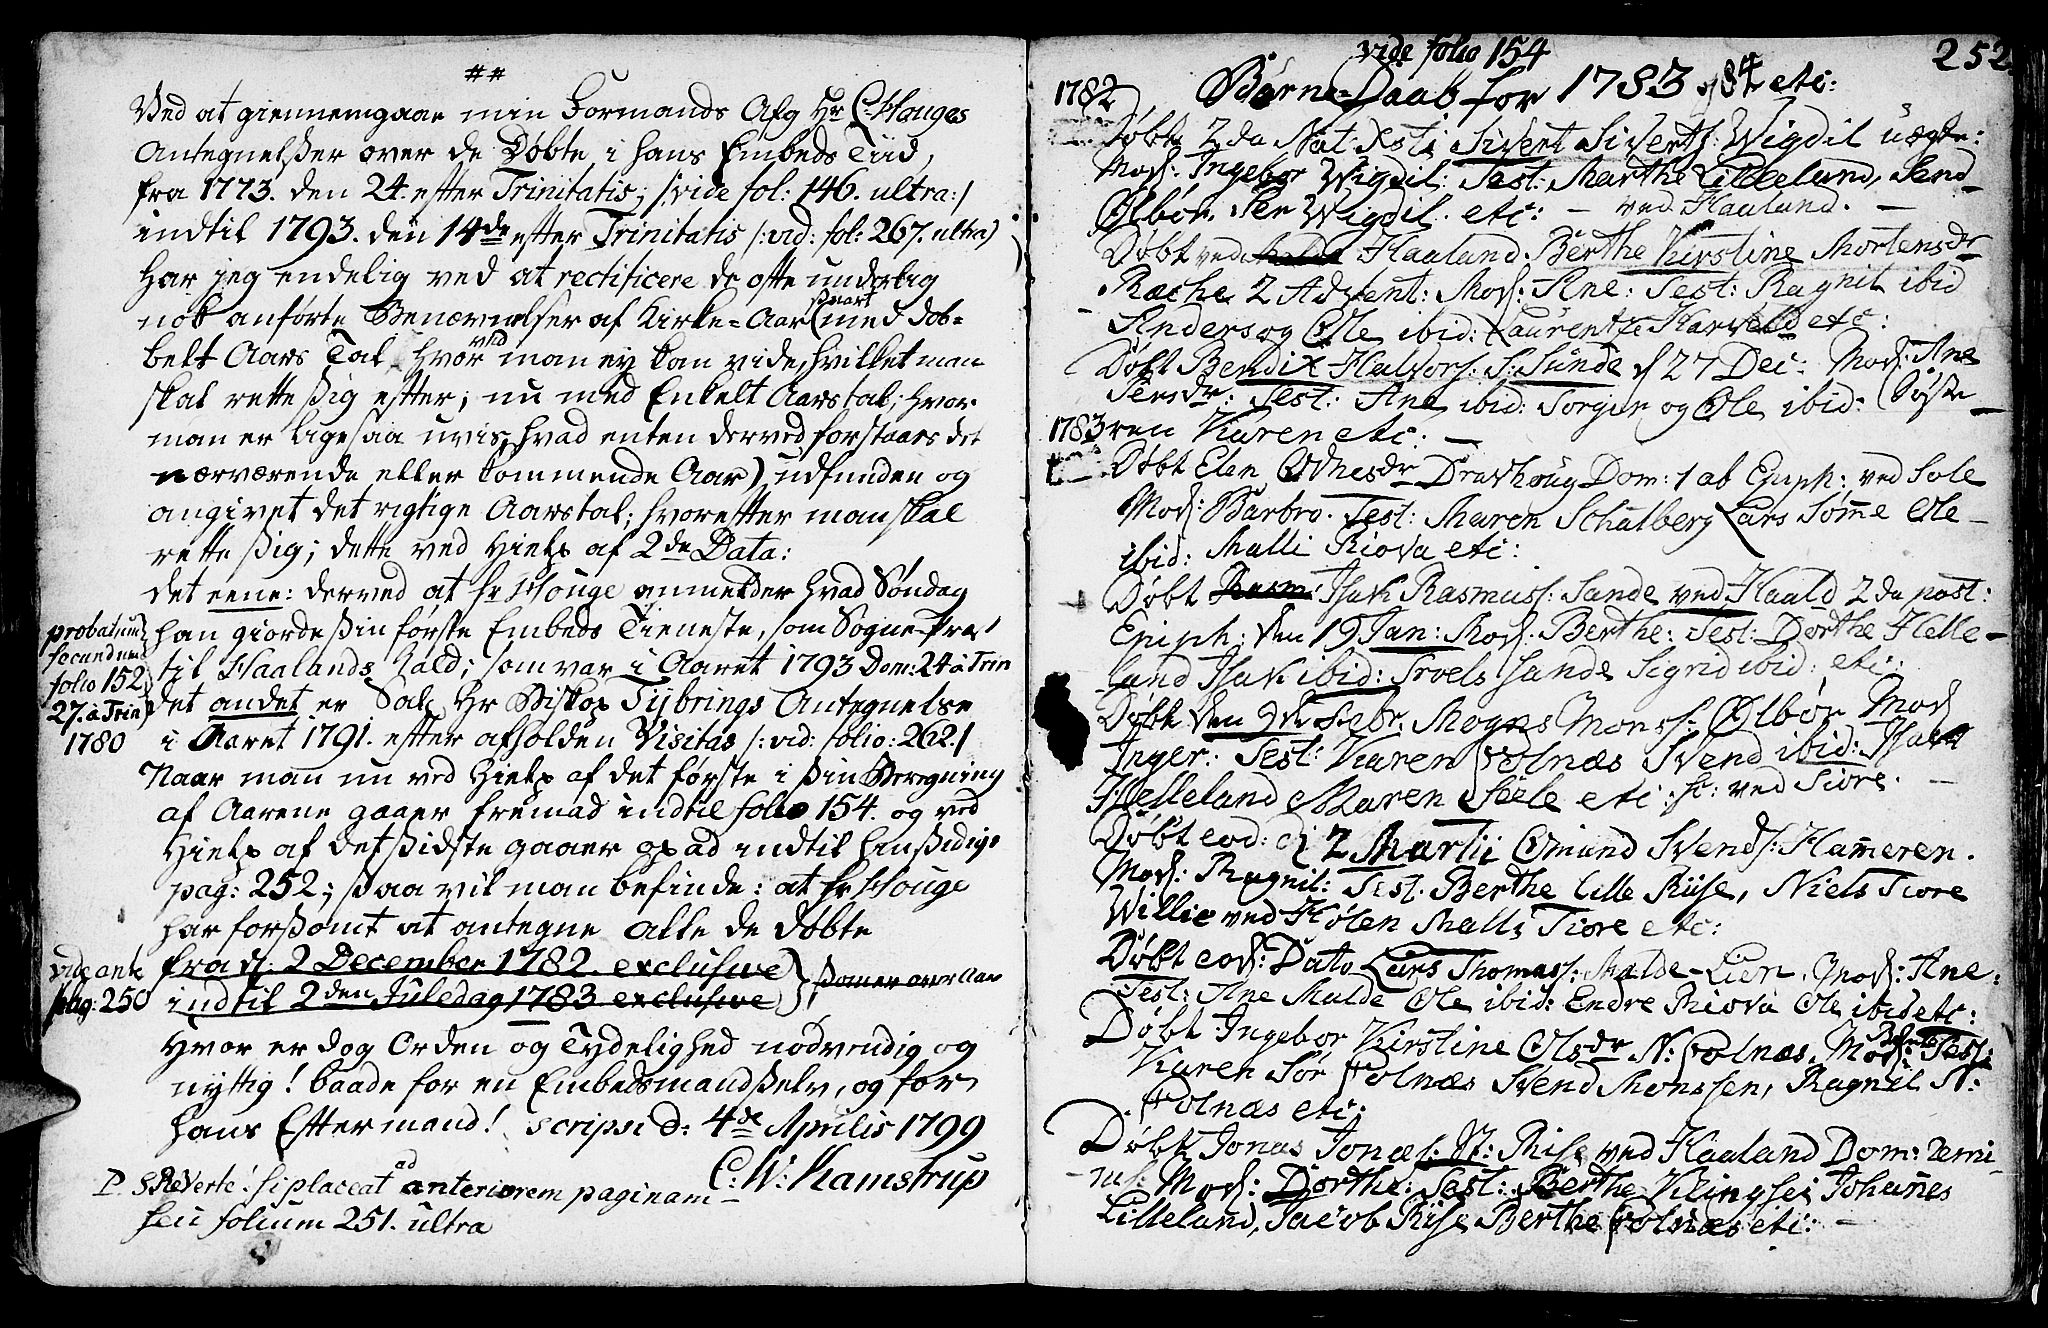 ##
Ved at giennemgaae min Formands Afg Hr C: Houges
Antegnelser over de Døbte i hans Embeds Tiid,
fra 1773. den 24. efter Trinitatis; /:vide fol: 146. ultra:/
indtil 1793. den 14de efter Trinitatis /:vid: fol: 267. ultra)
har jeg endelig ved at rectificere de ofte underlig
nok anførte Benævnelser af Kirke-Aar (snart med dob-
belt Aars Tal, hvor ved man ey kan vide, hvilket man
skal rette sig efter; nu med Enkelt Aarstal; hvor
man er ligesaa uvis, hvad enten derved forstaaes det
nærværende eller kommende Aar) udfunden og
angivet det rigtige Aarstal; hvorefter man skal
rette sig; dette ved Hielp af 2de Data:
det eene: derved at hr Houge anmelder hvad Søndag
han giorde sin første Embeds Tieneste, som Sogne-Præst
til Haalands Kald; som var i Aaret 1793 Dom: 24 à Trin
det andet er Sal: Hr Biskop Tybrings Antegnelse
i Aaret 1791. efter afholden Visitas /:vid: folio: 262./
Naar man nu ved Hielp af det første i sin Beregning
af Aarene gaaer fremad indtil folio 154. og ved
Hielp af det sidste gaaer op ad indtil hensidige
pag: 252; saa vil man befinde: at hr Houge
har forsømt at antegne alle de døbte
fra d: 2 December 1782. exclusive
indtil 2den Juledag 1783 exclusive } som er over Aar
Hvor er dog Orden og Tydelighed nødvendig og
nyttig! baade for en Embedsmand selv, og for
hans Eftermand! scripsi d: 4de Aprilis 1799
C: W: Kamstrup
P. S Reverte! si placeat ad anteriorem paginam
seu folium 251. ultra
probatum
secundum
folio 152
27. à Trin
1780
vide ante
pag: 250
vide folio 154
252.
Børne-Daab for 1783 og 84 etc:
1782
Døbt 2da Nat. Xsti Sivert Siverts: Wigdil uægte:
Mod: Ingebor Wigdil: Test: Marthe Lilleland, Svend
Ølbør. Per Wigdil. etc: – ved Haaland. –
Døbt ved Haaland. Berthe Kirstine Mortensdr
Ræche 2 Advent: Mod: Ane: Test: Ragnil ibid
Anders og Ole ibid: Laurentze Harveld etc:
Døbt Bendix Halvors: S: Sunde d 27 Dec: Mod: Ane
Persdr: Test: Ane ibid: Torger og Ole ibid: Søste-
1783 ren Karen etc: –
Døbt Elen Odnesdr Dravhoug Dom: 1 ab Epiph: ved Sole
Mod: Barbro. Test: Maren Schulberg Lars Sømme Ole
ibid: Malli Riova etc:
Døbt Rasm: Isak Rasmuss: Sande ved Haald 2da post:
Epiph: den 19 Jan: Mod: Berthe: Test: Dorthe Helle-
land Isak ibid: Troels Sande Sigrid ibid: etc:
Døbt den 9de Febr. Mogns Monss: Ølbør Mod
Inger: Test: Karen Folnæs Svend ibid: Isack
Helleland Maren Seele etc: sc: ved Tiore. –
Døbt eod: d 2 Martii Omund Svends: Hameren.
Mod: Ragnil: Test. Berthe Lille Riise, Niels Tiore
Willic ved Holen Malli Tiore etc:
Døbt eod: Dato Lars Thomass: Malde-Lien. Mod: Ane:
Test: Ane Malde Ole ibid: Endre Riova Ole ibid etc:
Døbt Ingebor Kirstine Olsdr N: Folnæs. Mod: Test:
Karen Sør Folnæs Svend Monssen, Ragnil N:
Folnæs etc:
Døbt Jonas Jonæs: N: Rise ved Haaland Dom: Remi-
nis: Mod: Dorthe: Test: Berthe Klingsei Johanes
Lilleland, Jacob Rise Berthe Folnæs etc: –